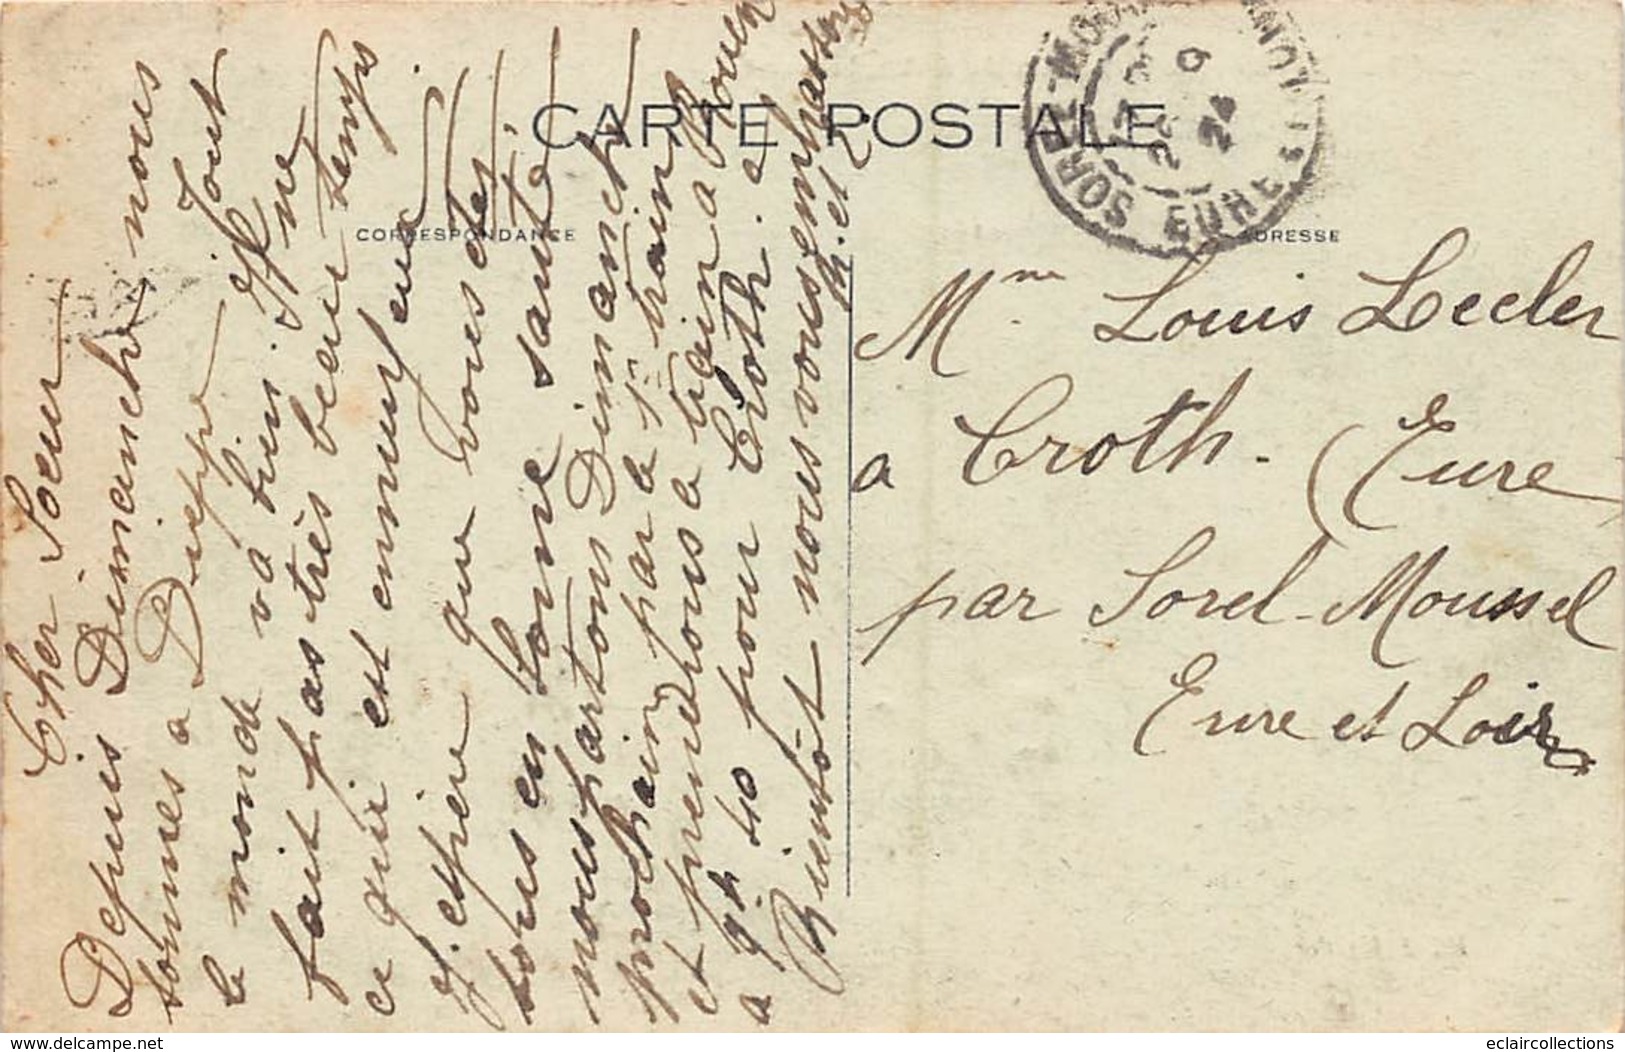 CARTE POSTALE
CORRESPONDANCE
ADRESSE
Cher Soeur
Depuis Dimanche nous
sommes a Dieppe Tout
le monde va bien. Il ne
fait pas très beau temps
ce qui est ennuyeux
J'espère que vous êtes
tous en bonne santé
nous partons Dimanche
prochain par le 1er train
et prendrons le train a Rouen
a 9h 40 pour Croth. e
Bientôt nous vous embrassons
M. et L.
Mme Louis Lecler
a Croth. (Eure
par Sorel-Moussel
Eure et Loir
SOREL-MOUSSEL
EURE-ET-
22 9
24
www.delcampe.net
eclaircollections